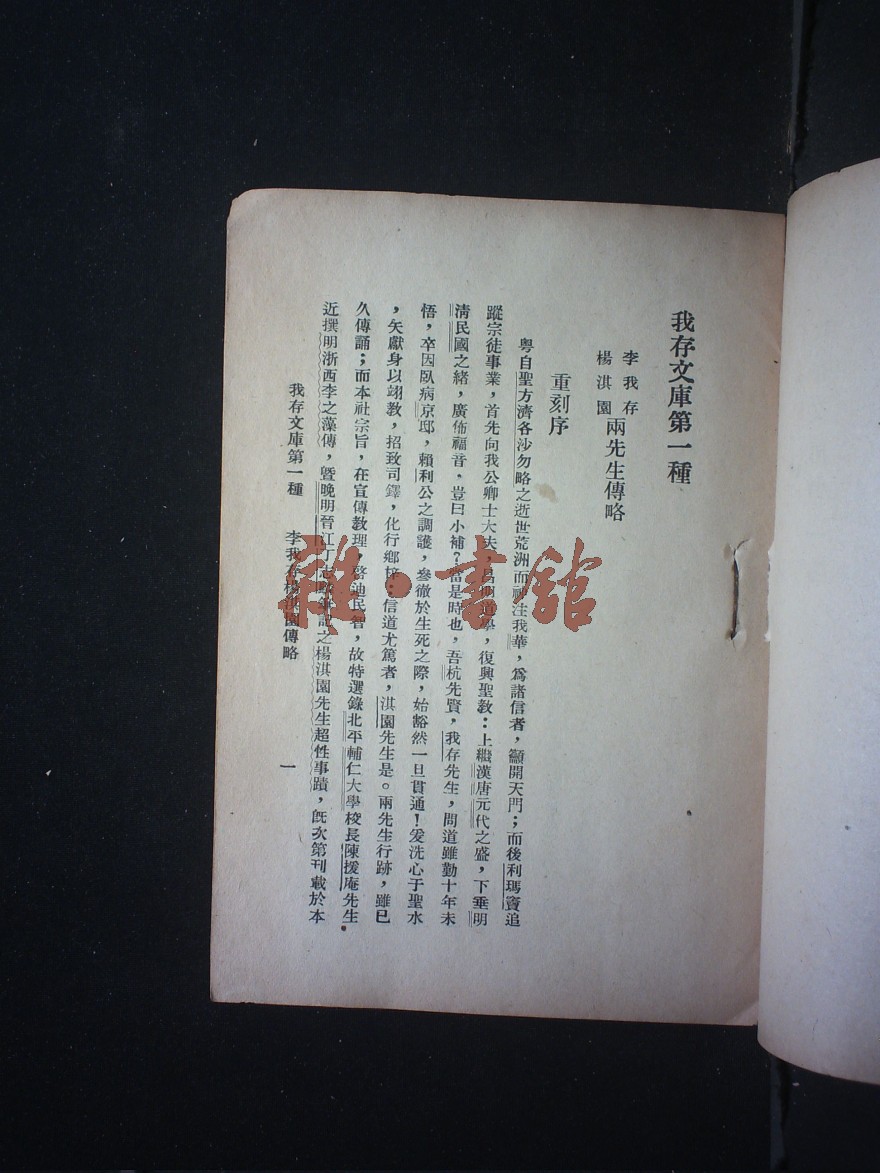 我存文庫第一種
李我存
楊淇園
兩先生傳略
重刻序
粤自聖方濟各沙勿略之逝世荒洲而 注我華，爲諸信者，籲開天門；而後利瑪竇追
蹤宗徒事業，首先向我公卿士大夫， 道學，復興聖教：上繼漢唐元代之盛，下垂明
清民國之緒，廣佈福音，豈曰小補？當是時也，吾杭先賢，我存先生，問道雖勤十年未
悟，卒因臥病京邸，賴利公之調護，參徹於生死之際，始豁然一旦貫通！爰洗心于聖水
，矢獻身以翊教，招致司鐸，化行鄉梓；信道尤篤者，淇園先生是。兩先生行跡，雖已
久傳誦；而本社宗旨，在宣傳教理，啓迪民智，故特選錄北平輔仁大學校長陳援庵先生
近撰明浙西李之藻傳，暨晚明晉江丁志 記之楊淇園先生超性事蹟，旣次第刊載於本
我存文庫第一種 李我存楊淇園傳略
一
雅·書館